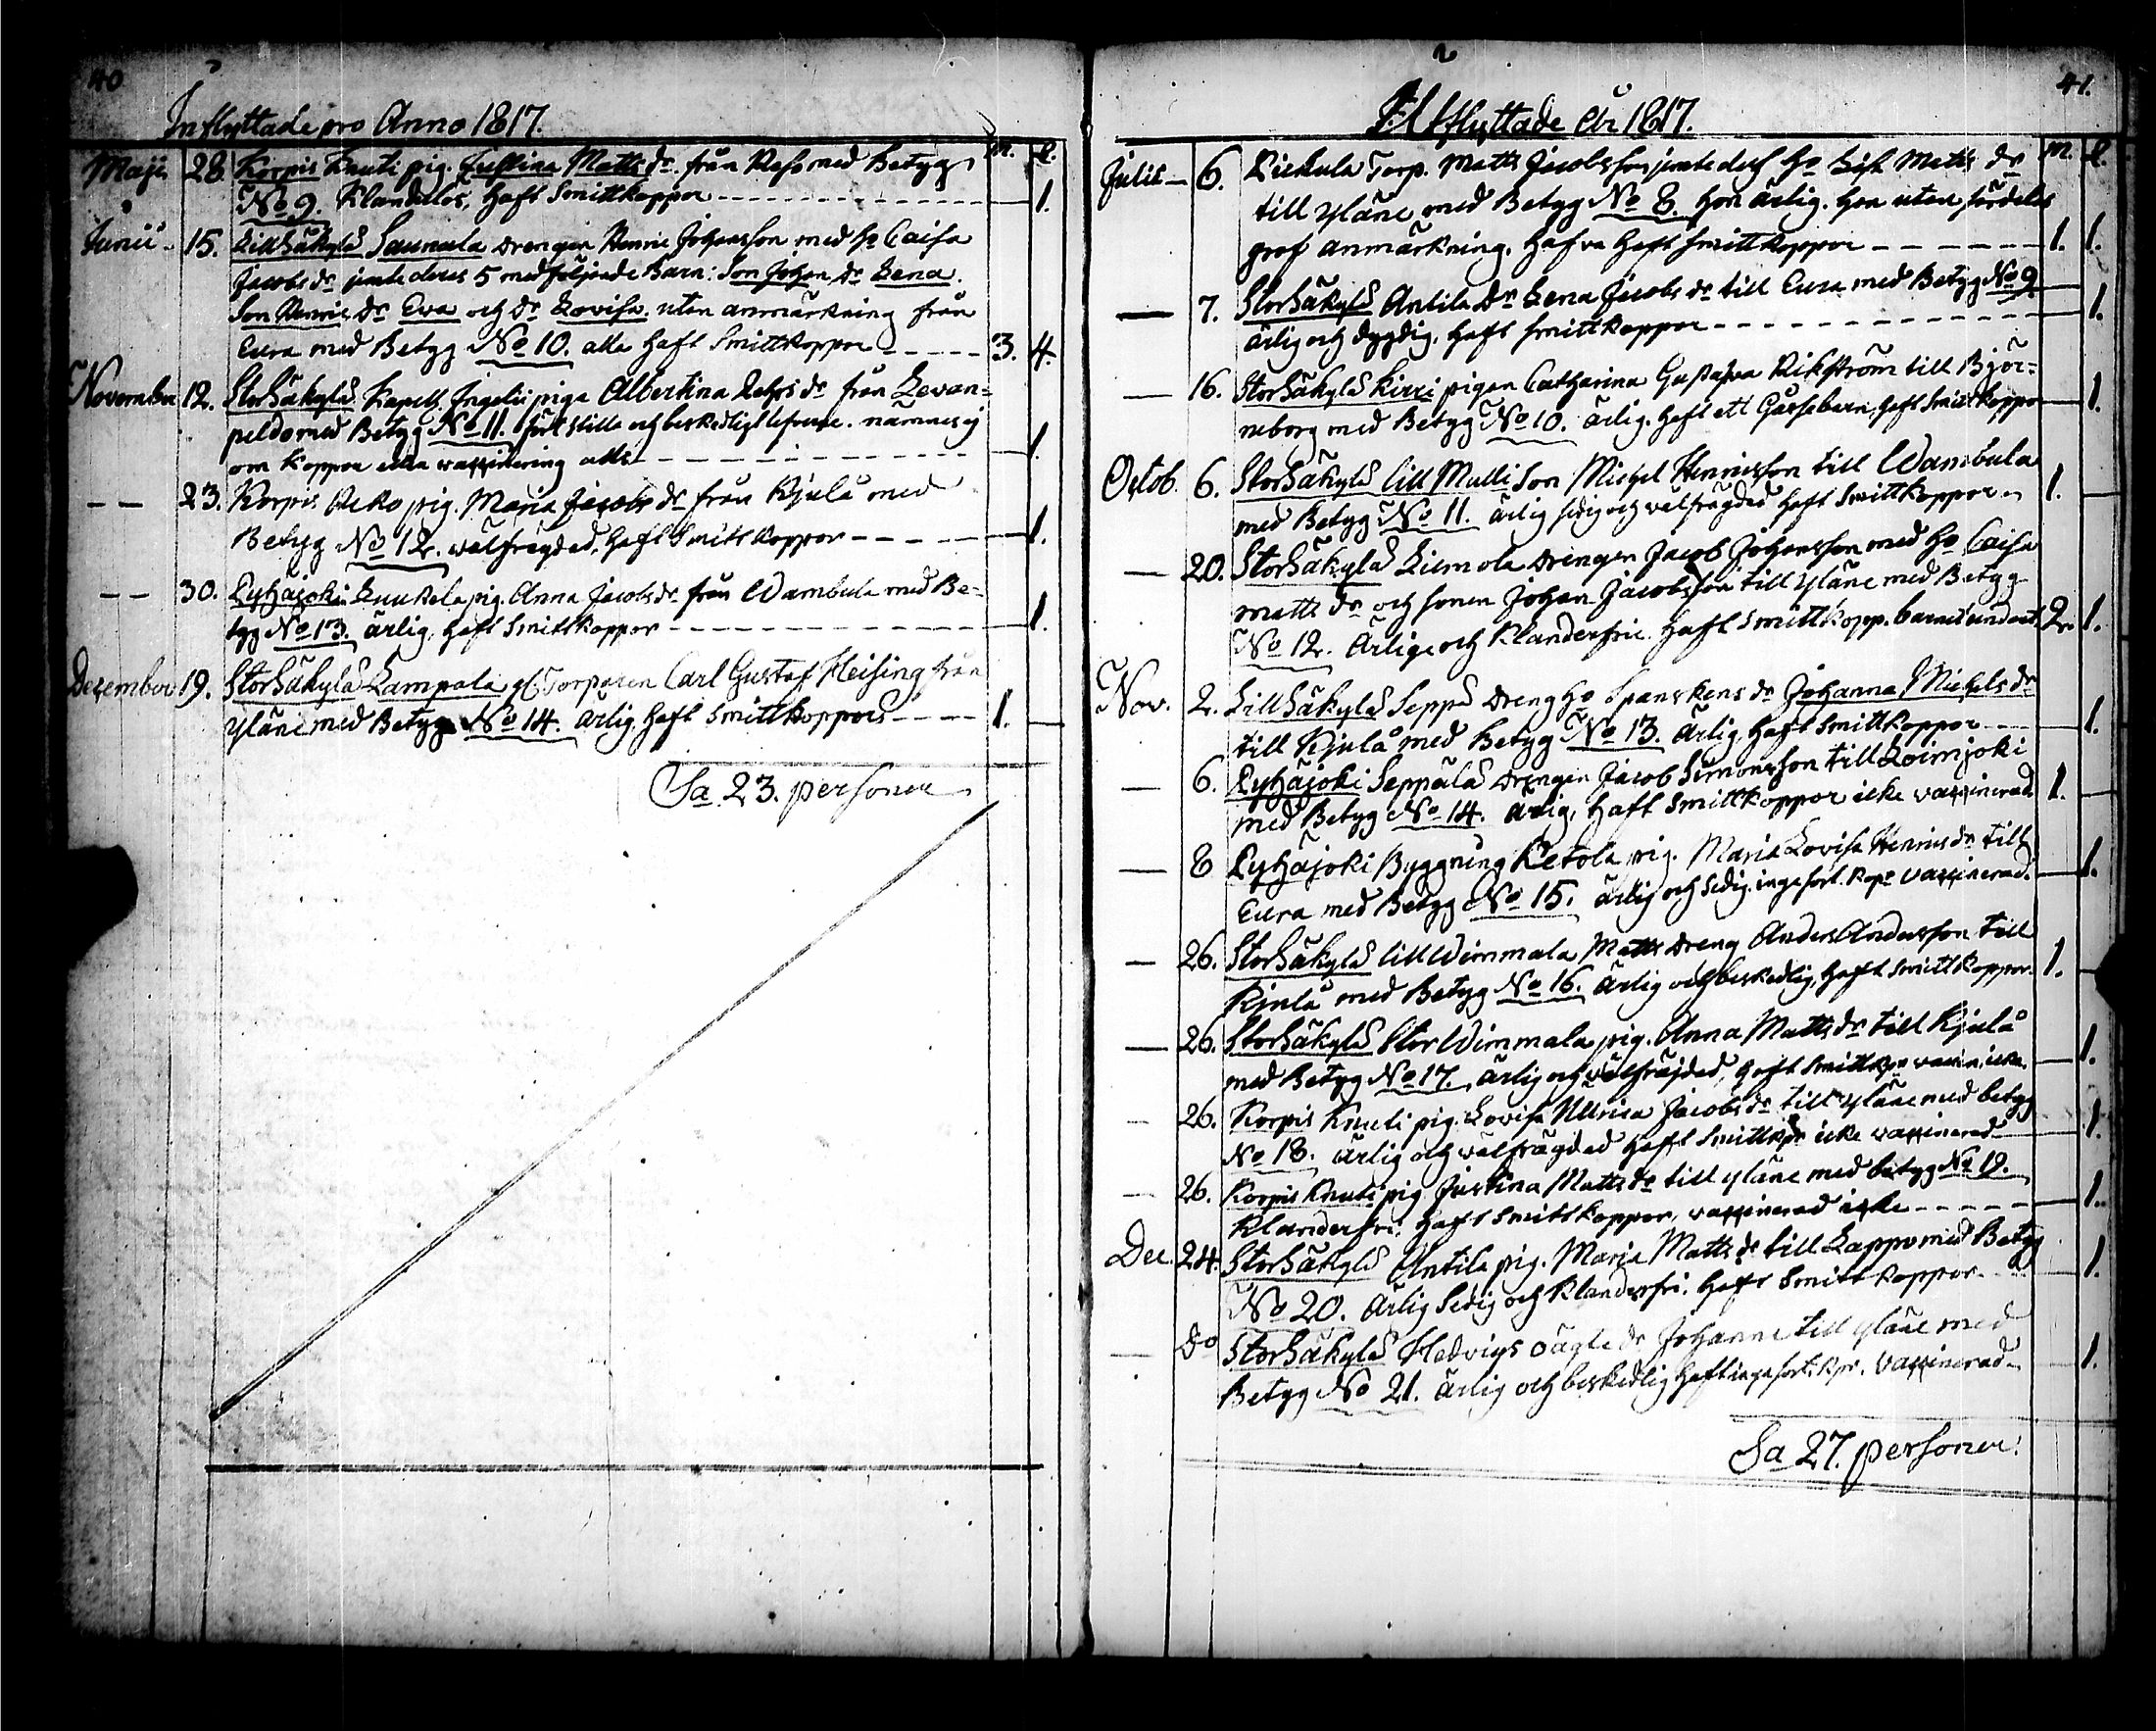 40
Inflyttade pro Anno 1817.
M. Q.
Maji 28 Korpis Knuti pig. Justina Matts dr. från Reso med Betyg
No 9. Klanderlös, haft Smittkoppor 1.
Junii 15. LillSäkylä Saunula Drengen Henric Johansson med ho Caisa
Jacobs dr jemte deras 5 medföljande Barn: Son Johan, dr Lena.
Son Henric dr Eva och dr Lovisa. utan anmärkning från
Eura med Betyg No 10. alla haft Smittkoppor 3. 4.
November 12. StorSäkylä Kapell. Ingelii piga Albertina dr från Levan=
peldo med Betyg No 11. fört stille och beskedligt lefverne. nämnes ej
om koppor eller vaccinering alls 1.
— — 23. Korpis Reko pig. Maria Jacobs dr från Kjulå med
Betyg No 12. välfrägdad, haft Smittkoppor 1.
— — 30. Pyhäjoki Luukela pig. Anna Jacobs dr från Wambula med Be=
tyg No 13. ärlig, haft Smittkoppor 1.
December 19. StorSäkylä Lampola Torparen Carl Gustaf Heising från
Yläne med Betyg No 14. ärlig, haft Smittkoppor 1. —
Sa 23. personer
41.
Utflyttade År 1817.
M. Q.
Julii — 6. Torp. Matts Jacobsson jemte dess ho Lisa Matts dr
till Yläne med Betyg No 8. han ärlig. hon utan särdeles
grof anmärkning. hafva haft Smittkoppor 1. 1.
— 7. StorSäkylä Antila Dr Lena Jacobs dr till Eura med Betyg No 9
ärlig och dygdig, haft Smittkoppor 1.
— 16. StorSäkylä Kirri pigan Catharina Gustafva Rikström till Björ=
neborg med Betyg No 10. ärlig. haft ett Gossebarn, haft Smittkoppor 1.
Octob. 6. StorSäkylä Lill Mulli Son Michel Henricsson till Wambula
med Betyg No 11. ärlig sedig och välfrägdad haft Smittkoppor 1. —
— 20. StorSäkylä Liemola Drengen Jacob Johansson med ho Caisa
Matts dr och sonen Johan Jacobsson till Yläne med Betyg
No 12. Ärlige och Klanderfrie. haft Smittkopp. barnet undant. 2. 1.
Nov. 2. LillSäkylä Seppä Dreng ho Spanskens dr Johanna Michels dr
till Kjulå med Betyg No 13. Ärlig, haft Smittkoppor 1.
— 6. Pyhäjoki Seppälä Drengen Jacob Simonsson till Loimjoki
med Betyg No 14. Ärlig, haft Smittkoppor icke vaccinerad 1. —
— 8 Pyhäjoki Byggning Ketola pig. Maria Lovisa Henrics dr till
Eura med Betyg No 15. ärlig och Sedig. inga kopr vaccinerad. 1.
— 26. StorSäkylä Lill Wimmala Matts Dreng Anders Andersson till
Kjulå med Betyg No 16. Ärlig och beskedlig, haft Smittkoppor. 1. —
— 26. StorSäkylä Stor Wimmala pig. Anna Matts dr till Kjulå
med Betyg No 17. ärlig och välfräjdad, haft Smittkpr vaccin. icke. 1.
— 26. Korpis Knuti pig. Lovisa Ulrica Jacobs dr till Yläne med betyg
No 18. ärlig och välfrägdad haft Smittkpr icke vaccinerad 1.
— 26. Korpis Knuti pig. Justina Matts dr till Yläne med betyg No 19.
Klanderfri, haft Smittkoppor, vaccinerad icke 1.
Dec. 24. StorSäkylä Antila pig. Maria Matts dr till Lappo med Betyg
No 20. Ärlig Sedig och Klanderfri. haft Smittkoppor. 1.
— Do StorSäkylä Hedvigs oägte dr Johanna till Yläne med
Betyg No 21. ärlig och beskedlig haft inga kpr. vaccinerad 1.
Sa 27. personer.